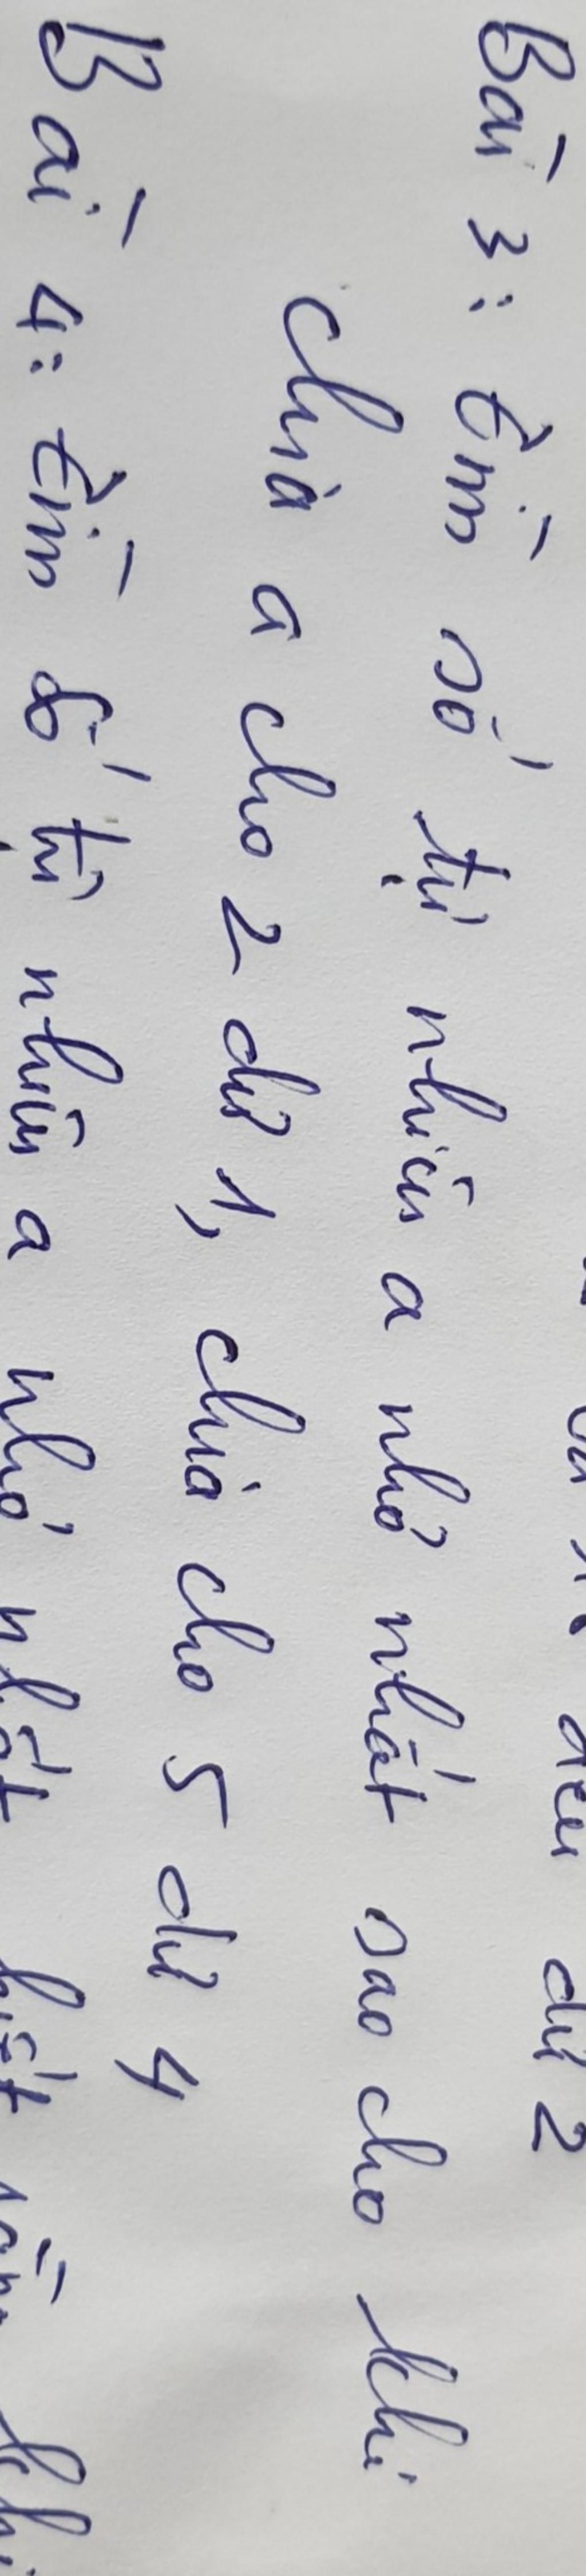 dư 2
Bài 3: Tìm số tự nhiên a nhỏ nhất sao cho khi
chia a cho 2 dư 1, chia cho 5 dư 4
Bài 4: Tìm số tự nhiên a nhỏ nhất biết rằng khi